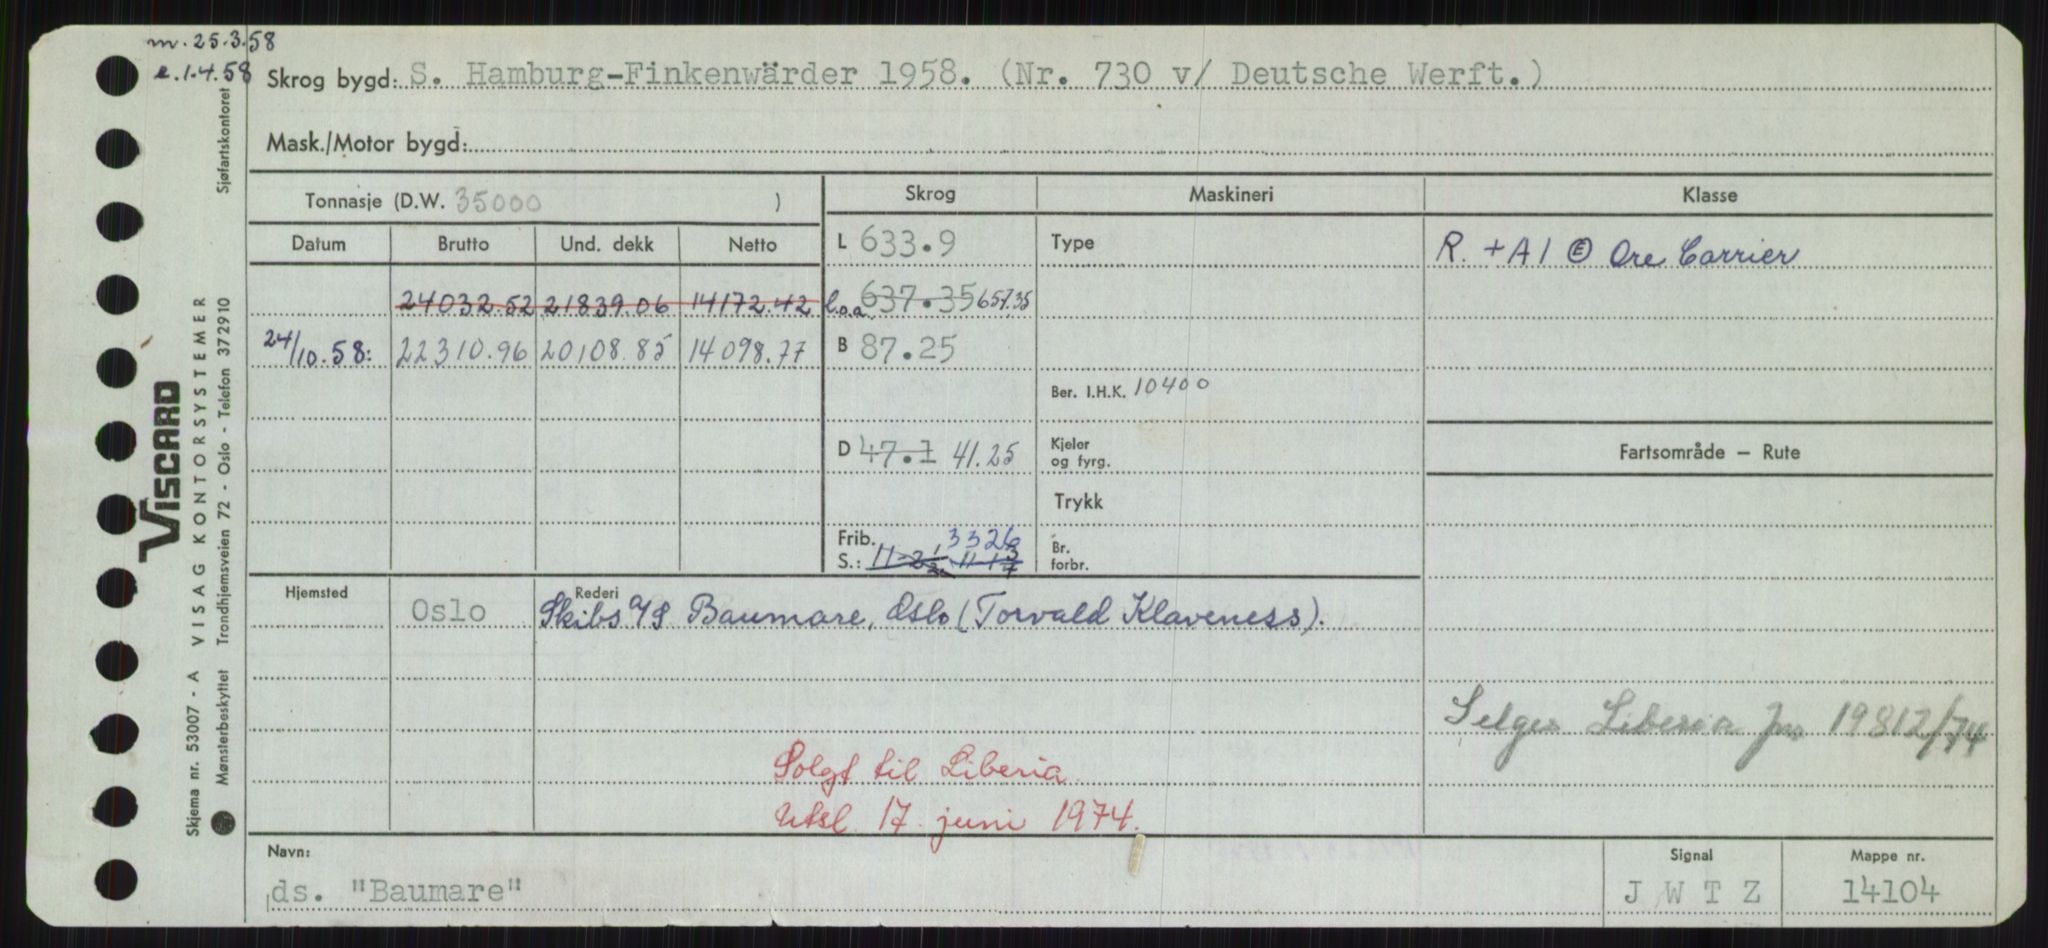 m. 25.3.58
e. 1.4.58
Skrog bygd: S. Hamburg-Finkenwärder 1958. (Nr. 730 v/ Deutsche Werft.)
Mask./Motor bygd:
Tonnasje (D.W. 35000 )
Skrog Maskineri Klasse
Datum Brutto Und. dekk Netto
L 633.9 Type R. +A1 Ⓔ Ore Carrier
24032.52 21839.06 14172.42 l.o.a. 637.35 657.35
24/10.58: 22310.96 20108.85 14098.77 B 87.25
Ber. I.H.K. 10400
D 47.1 41.25 Kjeler og fyrg.
Fartsområde — Rute
Trykk
Frib. 3326
S.: Br. forbr.
Hjemsted Oslo Rederi
Skibs A/S Baumare, Oslo (Torvald Klaveness).
Selges Liberia 1974
Solgt til Liberia
Utsl. 17. juni 1974.
Navn: Signal Mappe nr.
ds. "Baumare" J W T Z 14104
VISCARD
Skjema nr. 53007 - A VISAG KONTORSYSTEMER
Mønsterbeskyttet Trondhjemsveien 72 - Oslo - Telefon 372910 Sjøfartskontoret